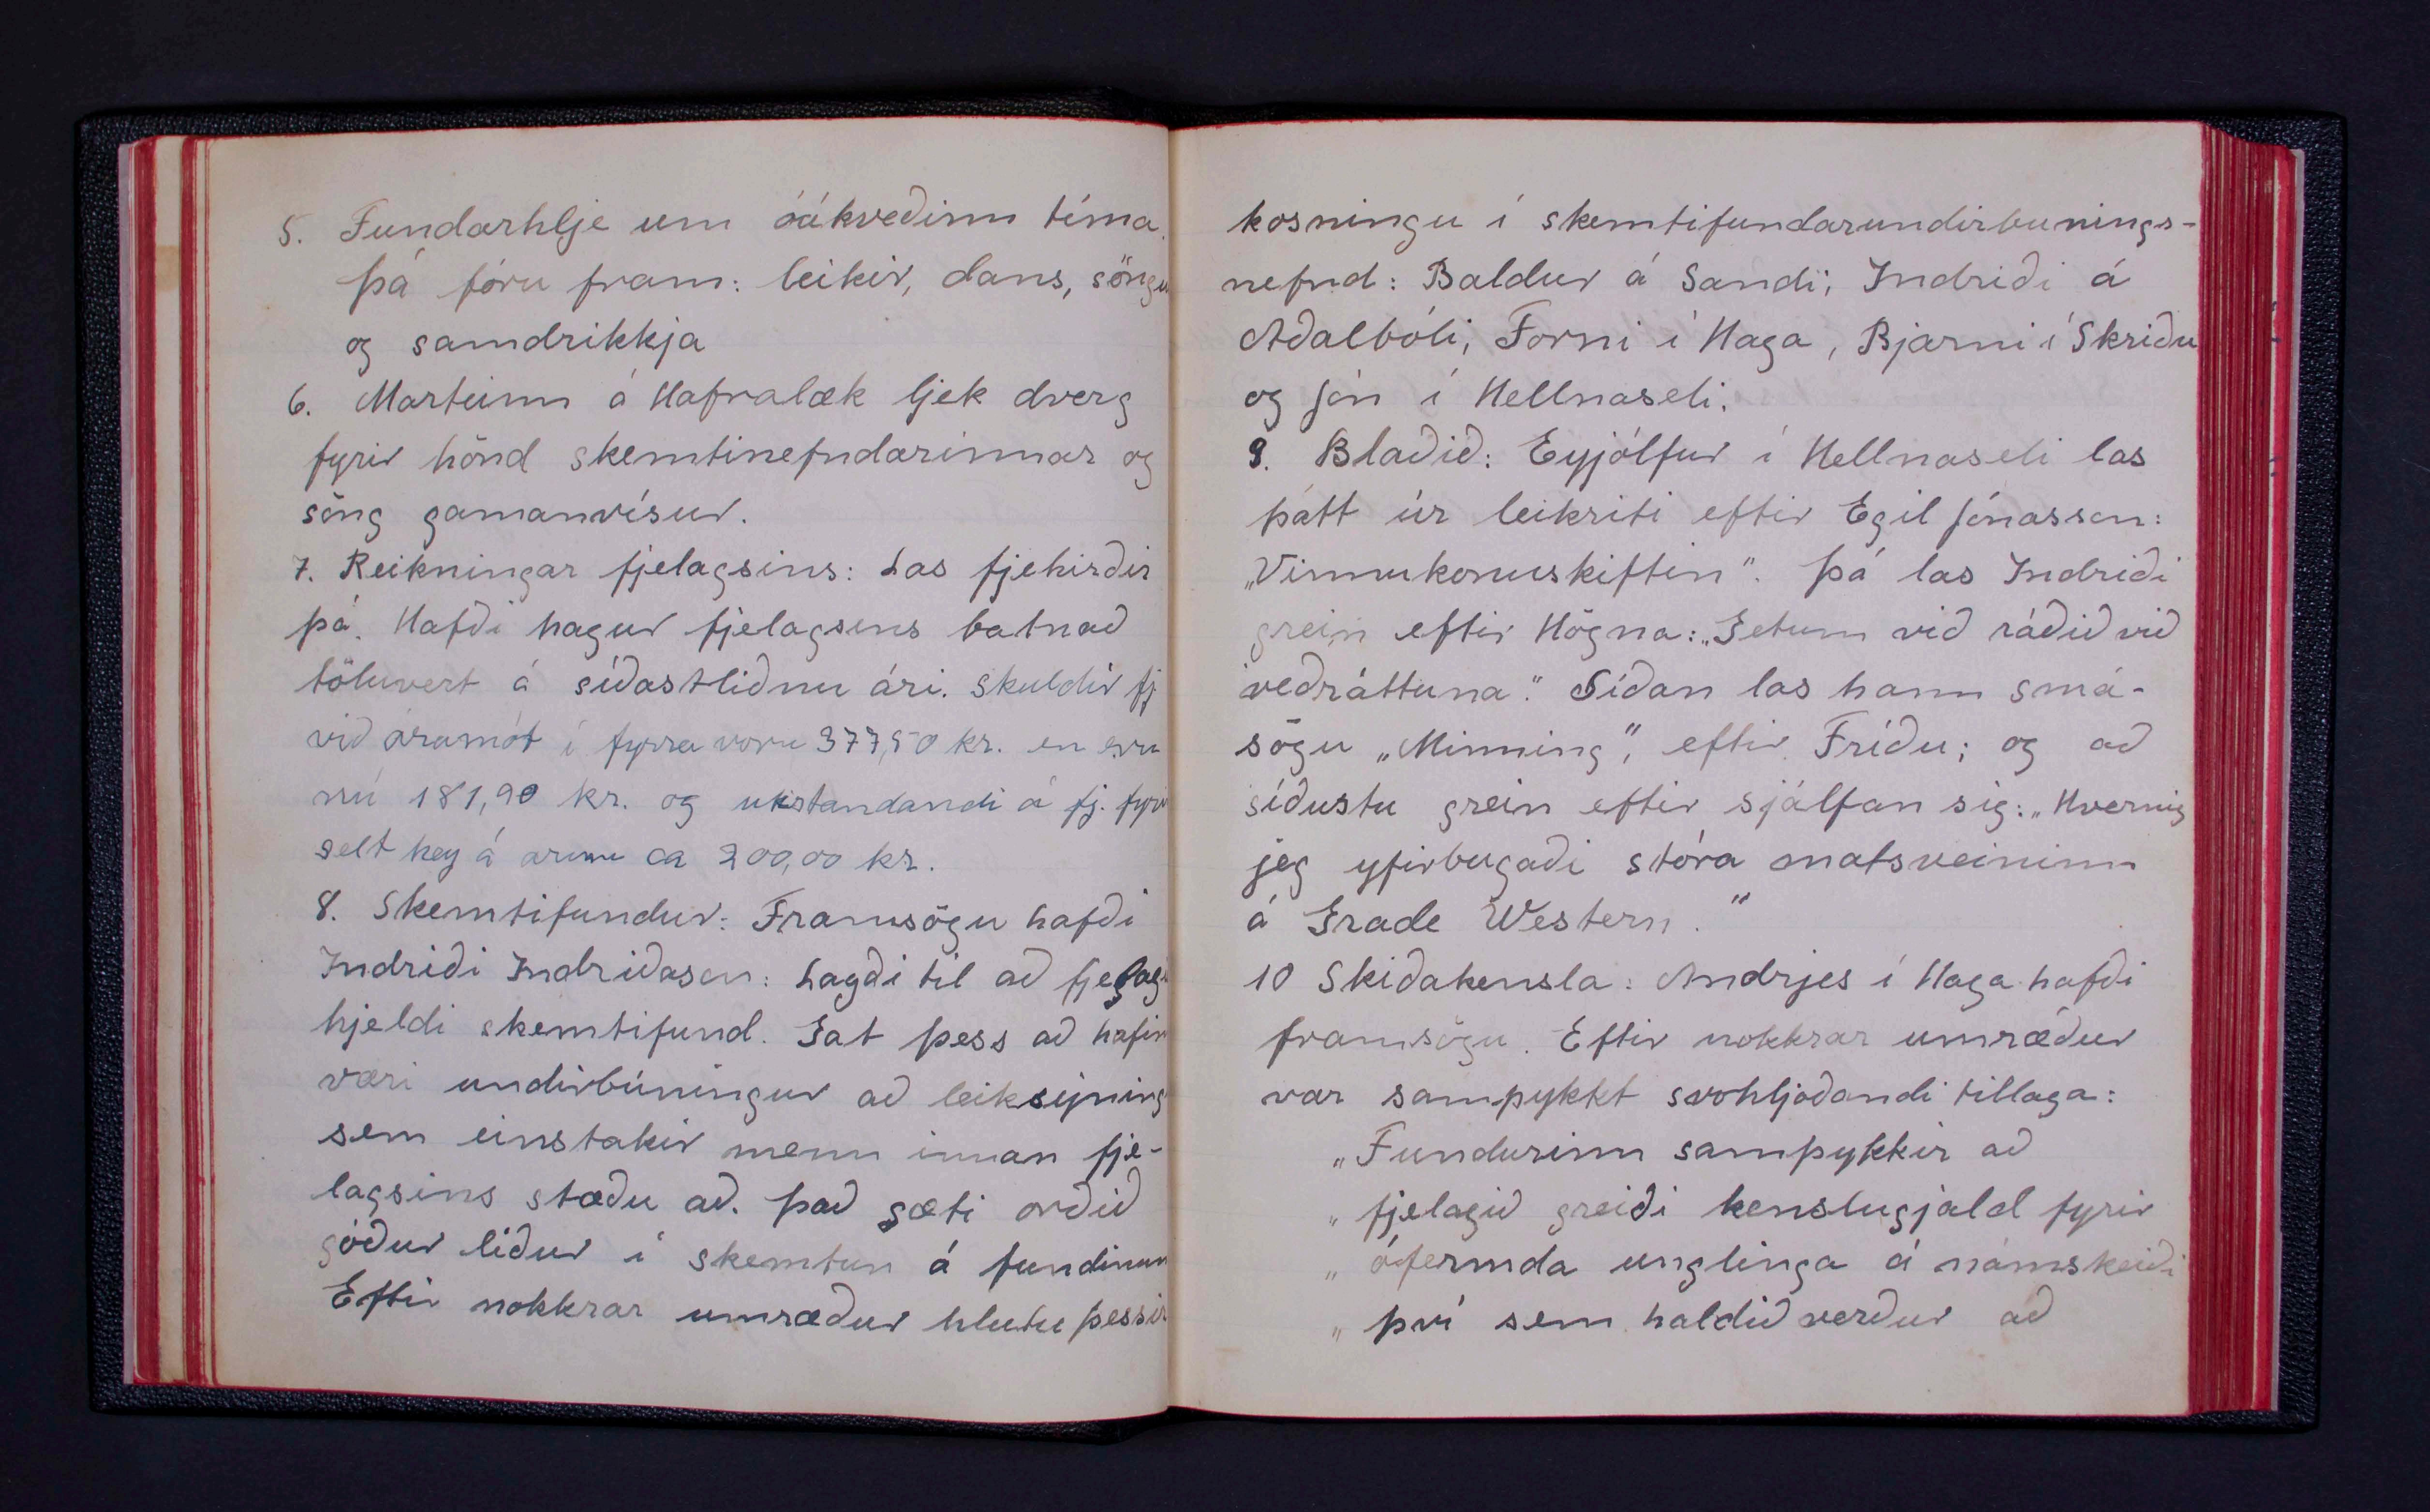 5. Fundarhlje um óákveðinn tíma.
Þá fóru fram: leikir, dans, söngu
og samdrikkja
6. Marteinn á Hafralæk ljek dverg
fyrir hönd skemtinefndarinnar og
söng gamanvísur.
7. Reikningar fjelagsins: Las fjehirðir
þá. Hafði hagur fjelagsins batnað
töluvert á síðastliðnu ári. Skuldir fj
við áramót í fyrra voru 377,50 kr. en eru
nú 181,90 kr. og utistandandi á fj. fyrir
selt hey á árinu ca 200,00 kr.
8. Skemtifundur: Framsögu hafði
Indriði Indriðason: Lagði til að fjelagi
hjeldi skemtifund. Gat þess að hafin
væri undirbúningur að leiksýning
sem einstakir menn innan fje-
lagsins stæðu að. Það gæti orðið
góður liður í skemtun á fundinum
Eftir nokkrar umræður hlutu þessir
kosningu í skemtifundarundirbunings-
nefnd: Baldur á Sandi; Indriði á
Aðalbóli; Forni í Haga, Bjarni í Skriðu
og Jón í Hellnaseli.
9. Blaðið: Eyjólfur í Hellnaseli las
þátt úr leikriti eftir Egil Jónasson:
„Vinnukonuskiftin“. Þá las Indriði
grein eftir Högna: „Getum við ráðið við
veðráttuna.“ Síðan las hann smá-
sögu „Minning“, eftir Fríðu; og að
síðustu grein eftir sjálfan sig: „Hvernig
jeg yfirbugaði stóra matsveininn
á Grade Western.“
10 Skiðakensla: Andrjes í Haga hafði
framsögu. Eftir nokkrar umræður
var samþykkt svohljóðandi tillaga:
„Fundurinn samþykkir að
„ fjelagið greiði kenslugjald fyrir
„ ófermda unglinga á námskeiði
„ því sem haldið verður að